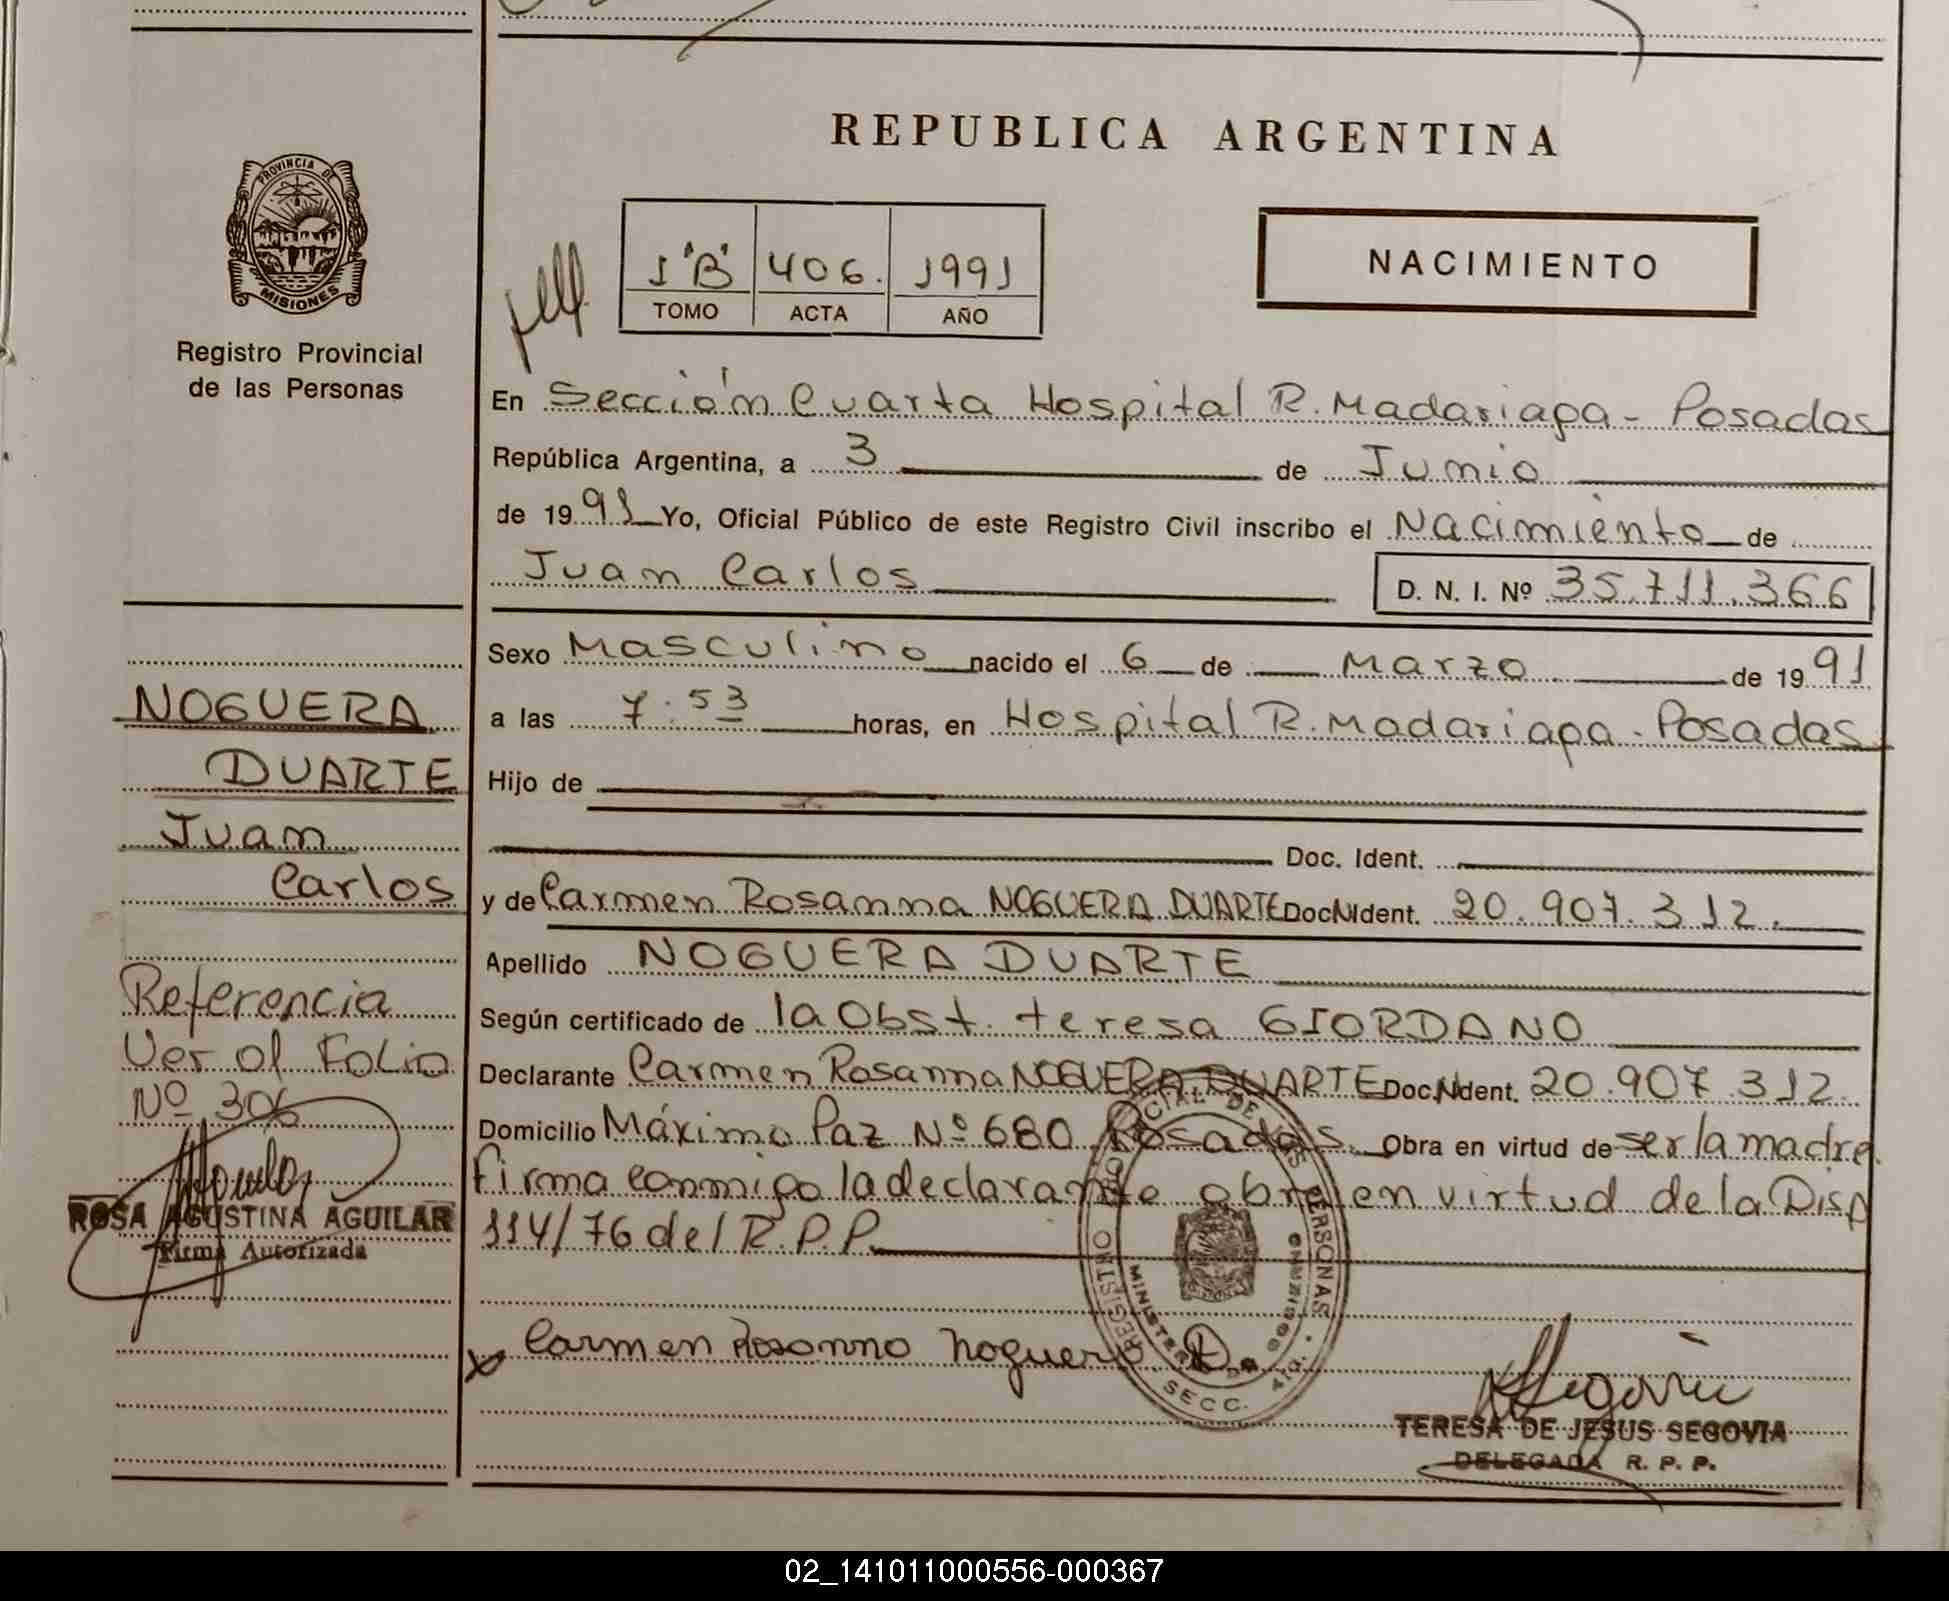 REPUBLICA ARGENTINA
PROVINCIA DE
MISIONES
Registro Provincial
de las Personas
1 "B" 406. 1991
TOMO ACTA AÑO
NACIMIENTO
En Sección Cuarta Hospital R. Madariaga - Posadas
República Argentina, a 3 de Junio
de 1991 Yo, Oficial Público de este Registro Civil inscribo el Nacimiento de
Juan Carlos D. N. I. Nº 35.711.366
Sexo Masculino nacido el 6 de Marzo de 1991
a las 7.53 horas, en Hospital R. Madariaga - Posadas
Hijo de
Doc. Ident.
y de Carmen Rosanna NOGUERA DUARTE Doc. Ident. 20.907.312.
Apellido NOGUERA DUARTE
Según certificado de la Obst. teresa GIORDANO
Declarante Carmen Rosanna NOGUERA DUARTE Doc. Ident. 20.907.312.
Domicilio Máximo Paz Nº 680 Posadas. Obra en virtud de ser la madre.
Firma conmigo la declarante obra en virtud de la Disp
114/76 del R.P.P.
x Carmen Rosanna Noguera D.
TERESA DE JESUS SEGOVIA
DELEGADA R. P. P.
NOGUERA
DUARTE
Juan
Carlos
Referencia
Ver al Folio
Nº 306
ROSA AGUSTINA AGUILAR
Firma Autorizada
02_141011000556-000367